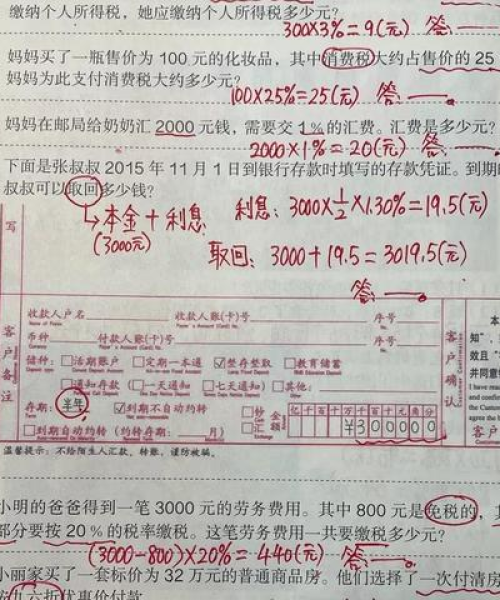 缴纳个人所得税，她应缴纳个人所得税多少元？
300×3%=9(元) 答：——。
妈妈买了一瓶售价为 100 元的化妆品，其中消费税大约占售价的 25
妈妈为此支付消费税大约多少元？
100×25%=25(元) 答：——。
妈妈在邮局给奶奶汇 2000 元钱，需要交 1%的汇费。汇费是多少元？
2000×1%=20(元) 答：——。
下面是张叔叔 2015 年 11 月 1 日到银行存款时填写的存款凭证。到期
叔叔可以取回多少钱？
本金+利息 利息：3000×1/2×1.30%=19.5(元)
(3000元)
取回：3000+19.5=3019.5(元)
答：——。
写
收款人户名 收款人账(卡)号 序号
币种 付款人账(卡)号 序号
客户备注
储种：□活期账户 □定期一本通 ☑整存整取 □教育储蓄
□通知存款 (□一天通知 □七天通知) □其他：
存期：半年 ☑到期不自动转存 □钞 □汇 金额 亿千百十万千百十元角分
¥300000
□到期自动转存 (约转存期：___月)
客户确认
本
知"，
效且
并同意
客户
温馨提示：不给陌生人汇款，转账，谨防被骗。
小明的爸爸得到一笔 3000 元的劳务费用。其中 800 元是免税的，其
部分要按 20％的税率缴税。这笔劳务费用一共要缴税多少元？
(3000-800)×20%=440(元) 答：——。
小丽家买了一套标价为 32 万元的普通商品房。他们选择了一次付清房
按九六折优惠价付款